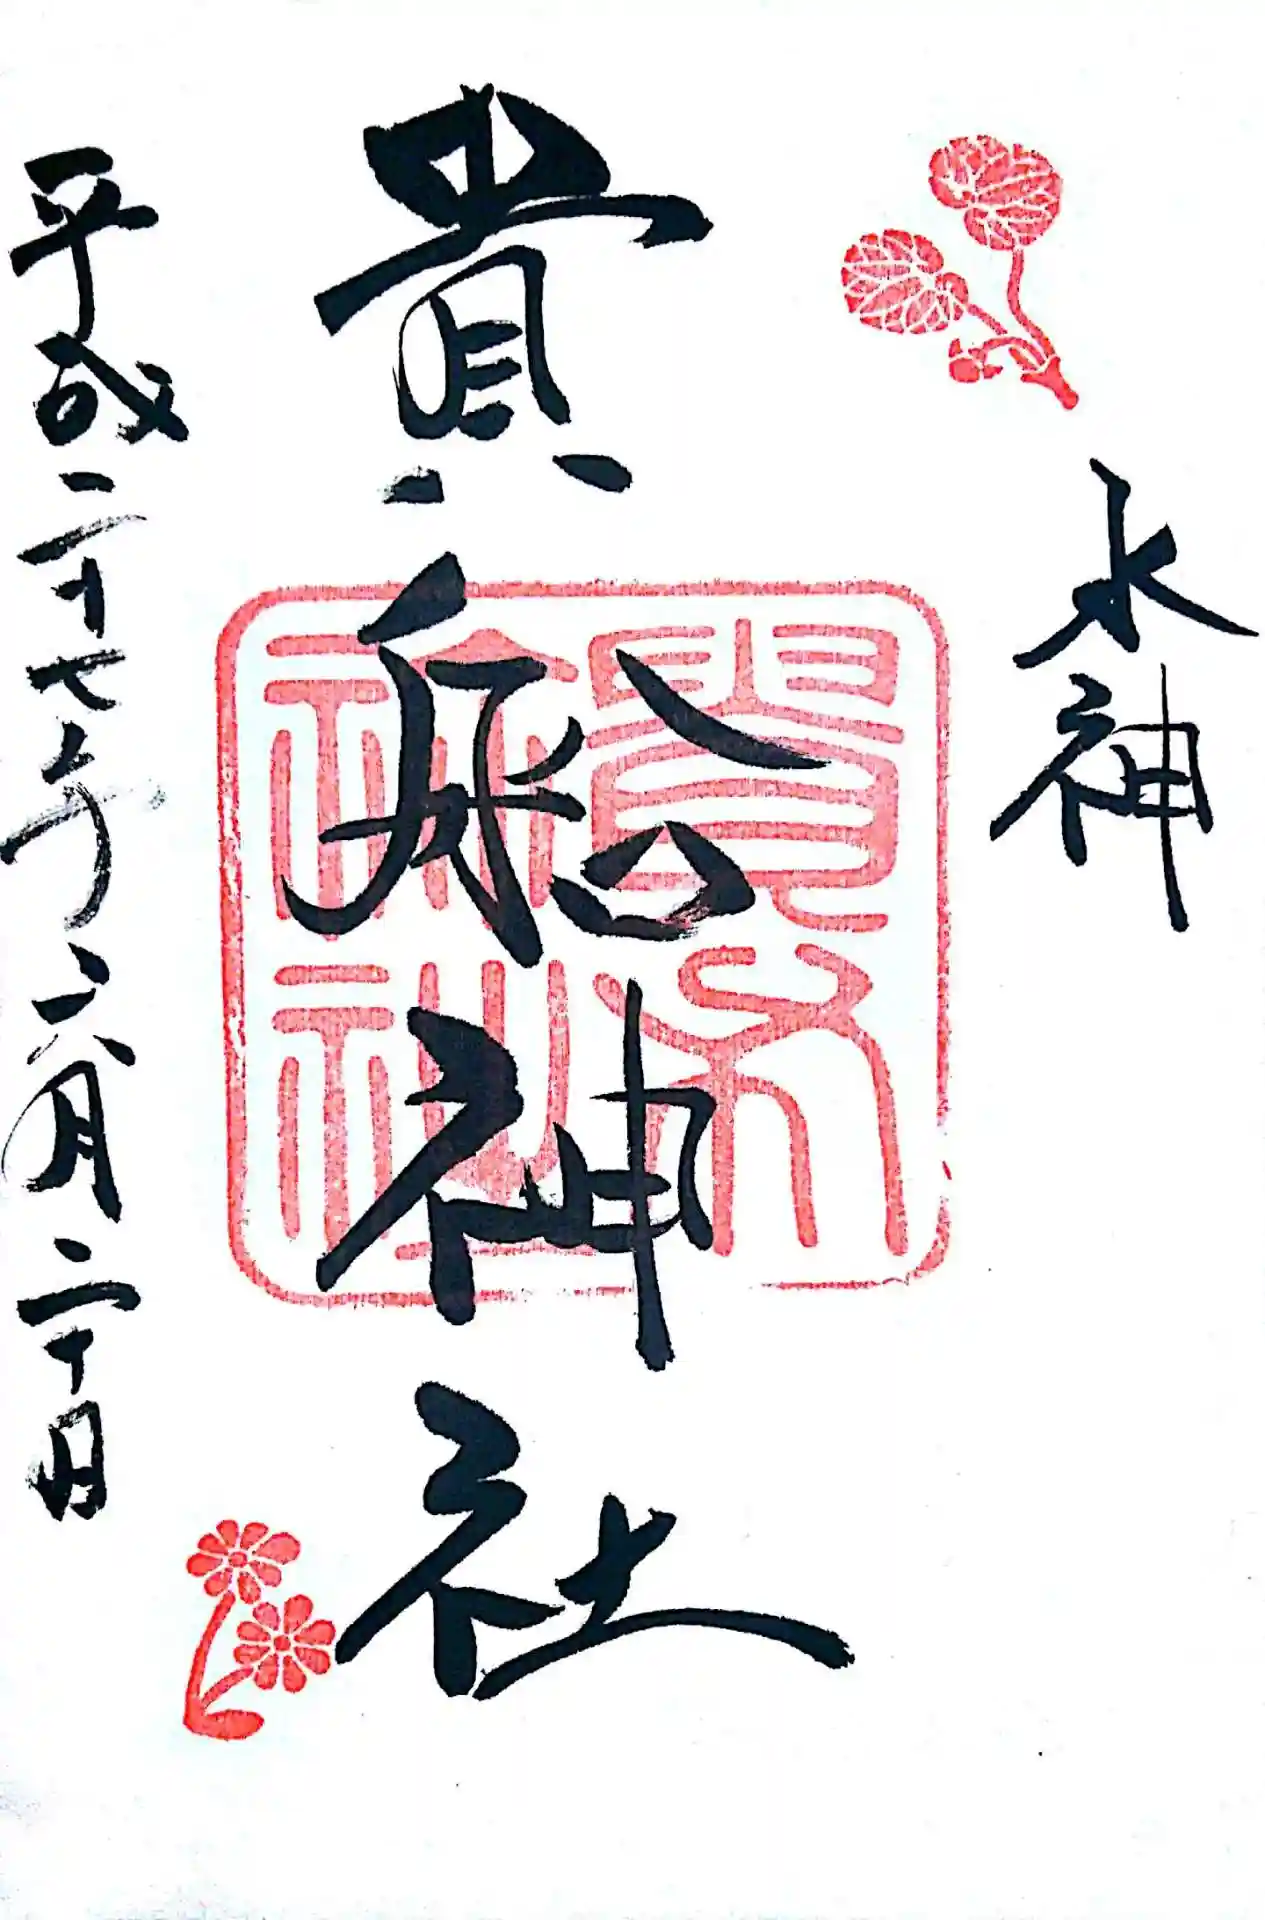 水神
貴舩神社
貴布
祢社
平成二十七年六月二十日